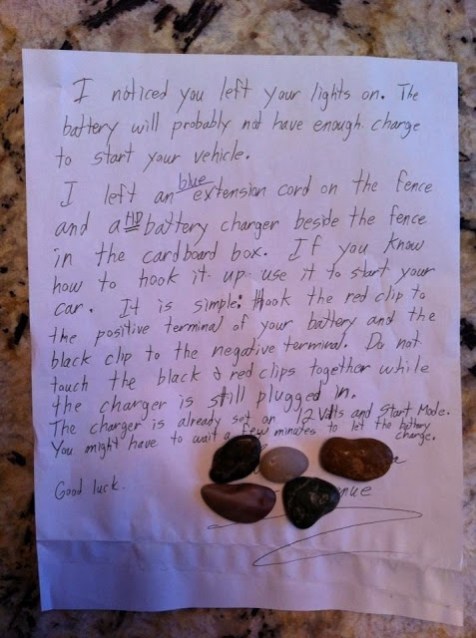 I noticed you left your lights on. The
battery will probably not have enough charge
to start your vehicle.
I left an blue extension cord on the fence
and a battery charger beside the fence
in the cardboard box. If you know
how to hook it up use it to start your
car. It is simple: Hook the red clip to
the positive terminal of your battery and the
black clip to the negative terminal. Do not
touch the black & red clips together while
the charger is still plugged in.
The charger is already set on 12 Volts and Start Mode.
You might have to wait a few minutes to let the battery
charge.
Good luck.
nue